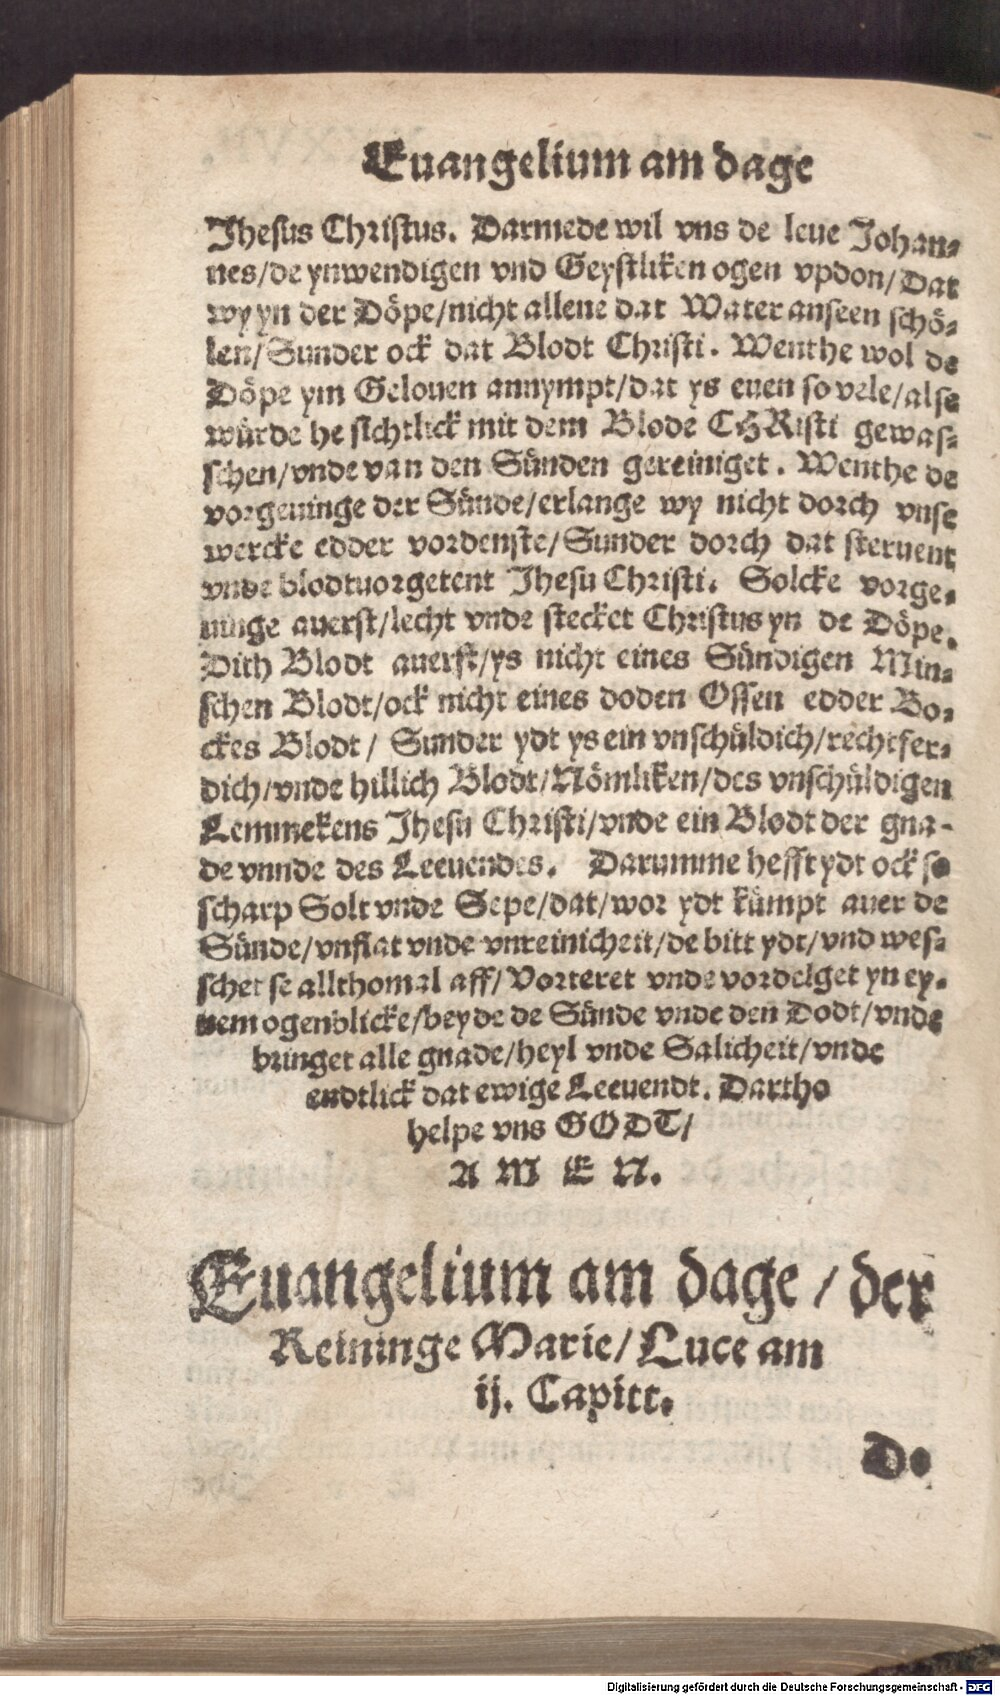 Euangelium am dage
Jhesus Christus. Darmede wil vns de leue Johan⸗
nes/de ynwendigen vnd Geystliken ogen vpdon/Dat
wy yn der Döpe/nicht allene dat Water anseen schö⸗
len/Sunder ock dat Blodt Christi. Wenthe wol de
Döpe ym Gelouen annympt/dat ys euen so vele/alse
würde he sichtlick mit dem Blode CHRisti gewas⸗
schen/vnde van den Sünden gereiniget. Wenthe de
vorgeuinge der Sünde/erlange wy nicht dorch vnse
wercke edder vordenste/Sunder dorch dat steruent
vnde blodtuorgetent Jhesu Christi. Solcke vorge⸗
uinge auerst/lecht vnde stecket Christus yn de Döpe.
Dith Blodt auerst/ys nicht eines Sündigen Min⸗
schen Blodt/ock nicht eines doden Ossen edder Bo⸗
ckes Blodt/ Sunder ydt ys ein vnschüldich/rechtfer⸗
dich/vnde hillich Blodt/Nömliken/des vnschüldigen
Lemmekens Jhesu Christi/vnde ein Blodt der gna⸗
de vnnde des Leeuendes. Darumme hefft ydt ock so
scharp Solt vnde Sepe/dat/wor ydt kümpt auer de
Sünde/vnflat vnde vnreinicheit/de bitt ydt/vnd wes⸗
schet se allthomal aff/Vorteret vnde vordelget yn ey⸗
nem ogenblicke/beyde de Sünde vnde den Dodt/vnde
bringet alle gnade/heyl vnde Salicheit/vnde
endtlick dat ewige Leeuendt. Dartho
helpe vns GODT/
A M E N.
Euangelium am dage / der
Reininge Marie/Luce am
ij. Capitt.
De
Digitalisierung gefördert durch die Deutsche Forschungsgemeinschaft - DFG